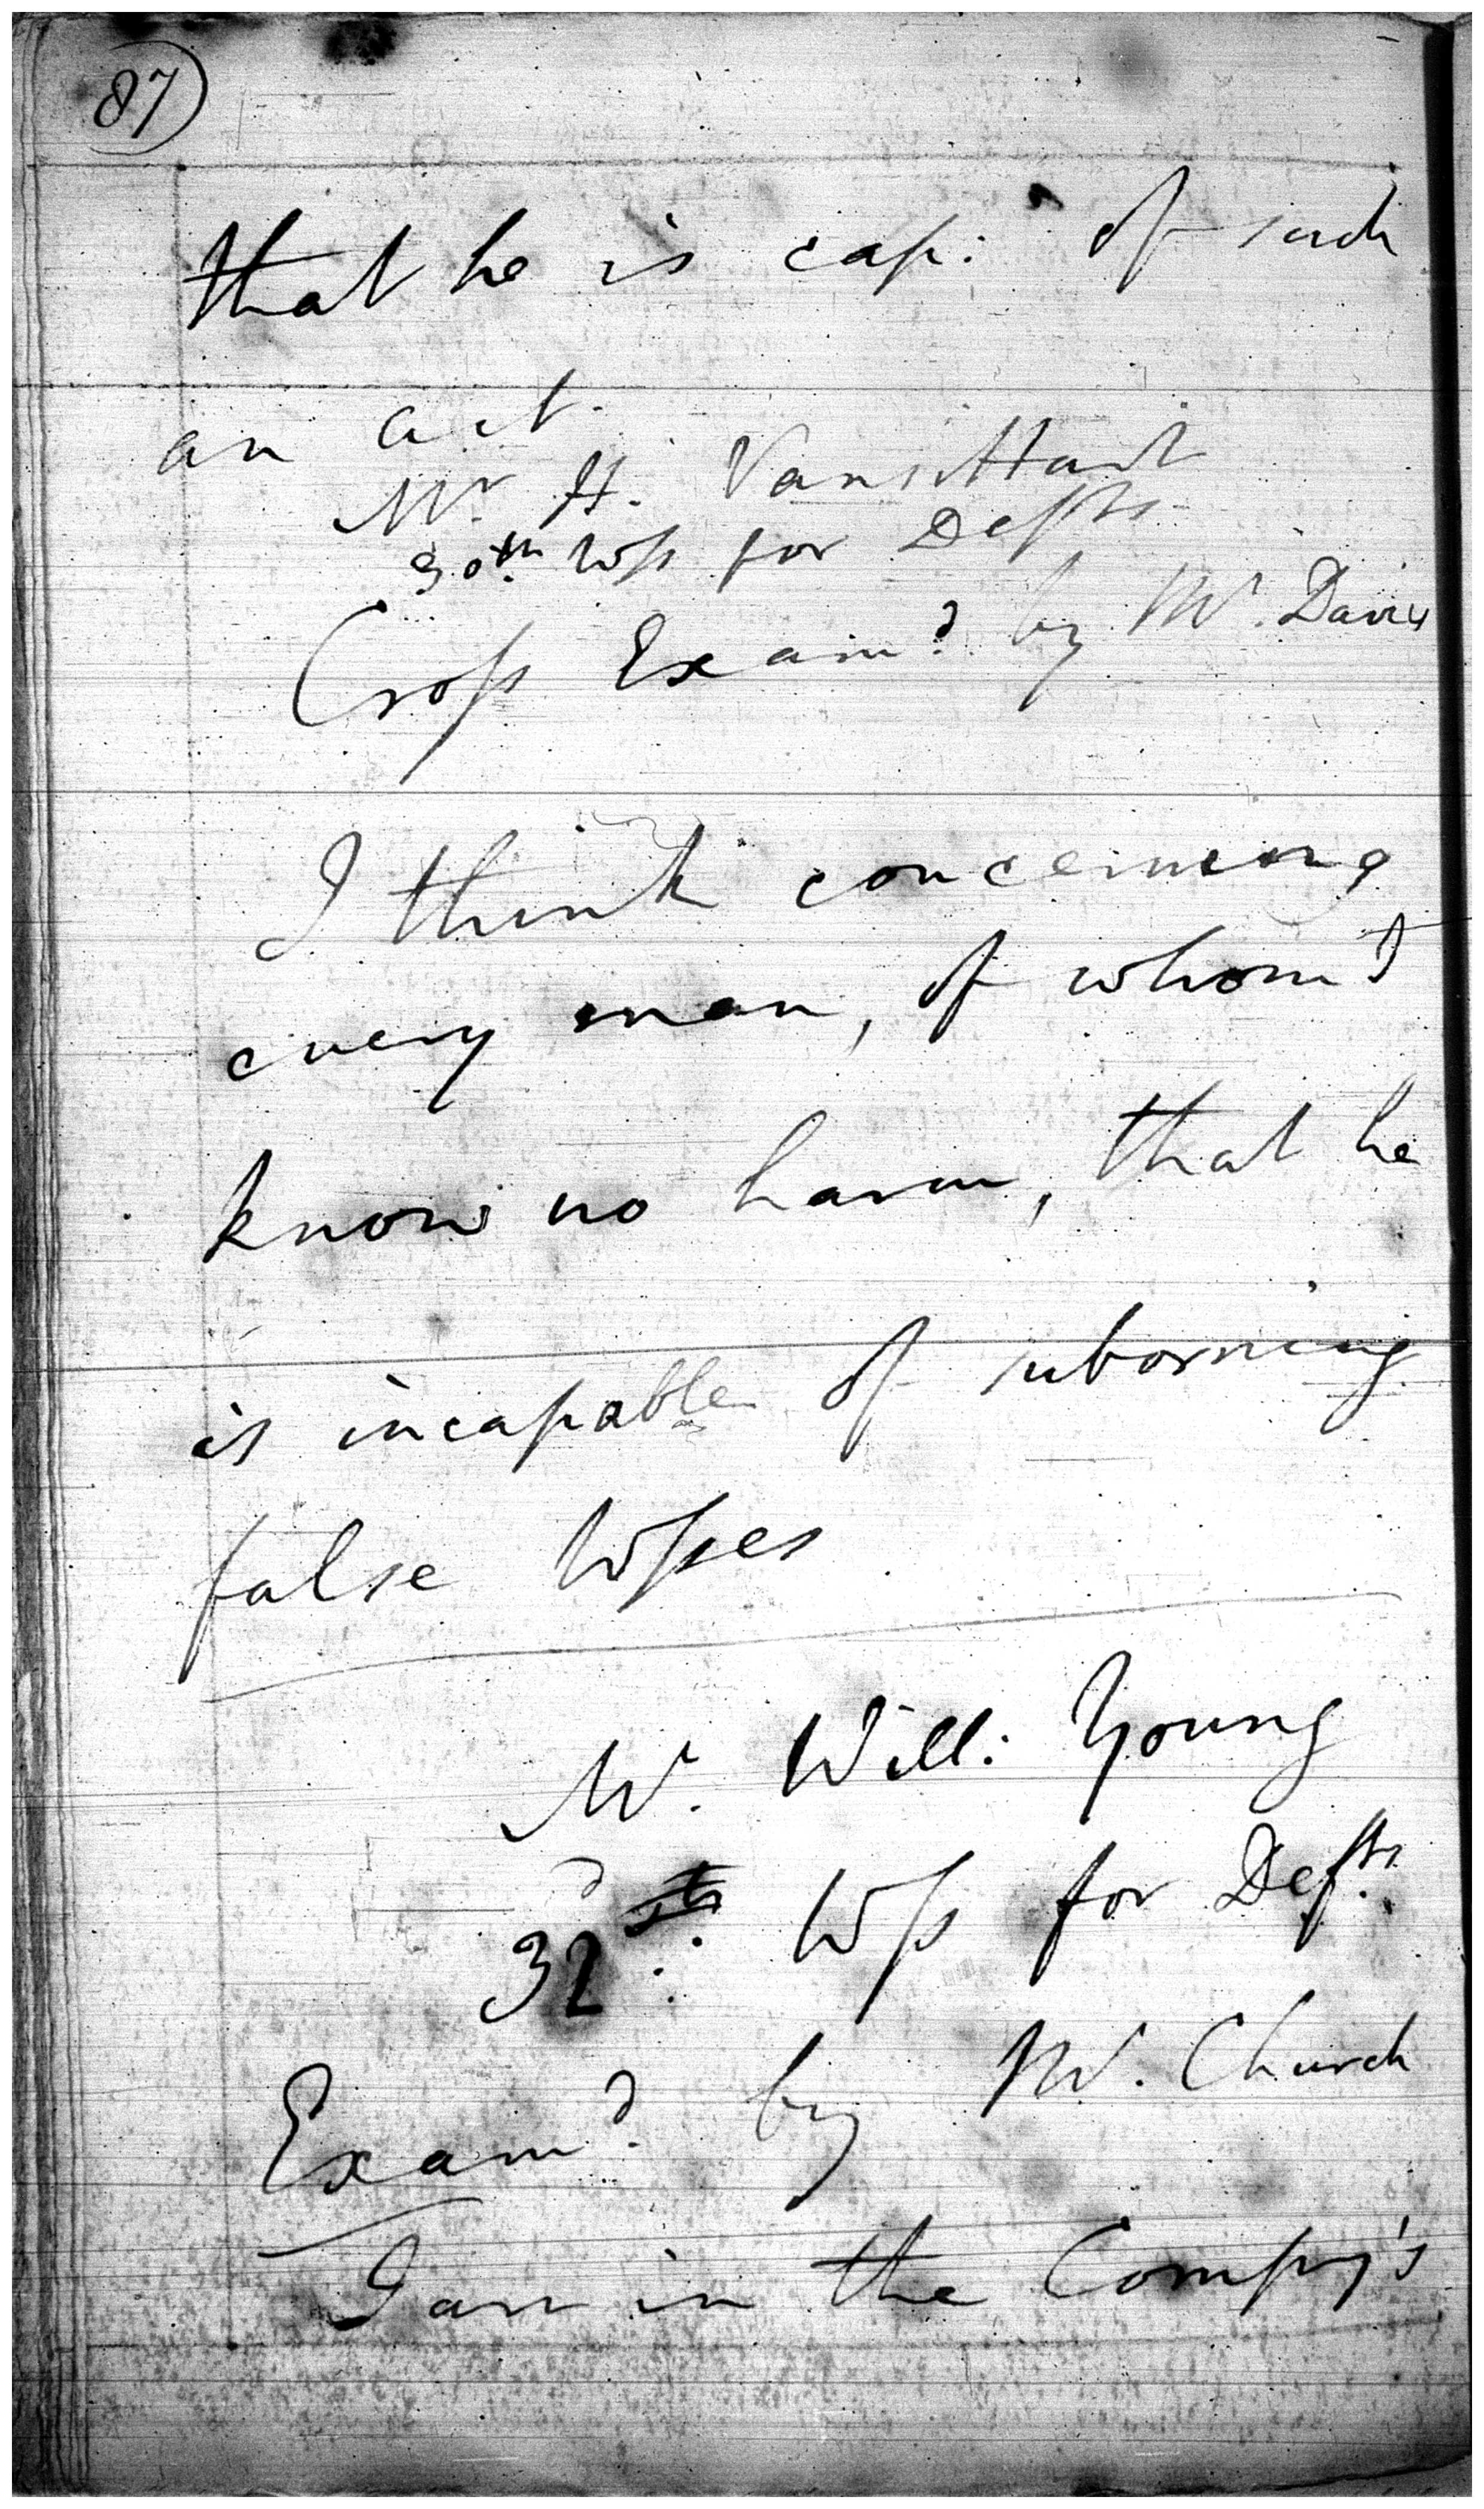 87
that he is cap: of such
an act.
Mr H. Vansittart
30th Wss for Defts
Cross Examd. by Mr. Davies
I think concerning
every man, of whom I
know no harm, that he
is incapable of suborning
false Wsses
Mr. Will: Young
32d. Wss for Defts.
Examd. by Mr. Church
I am in the Compy's